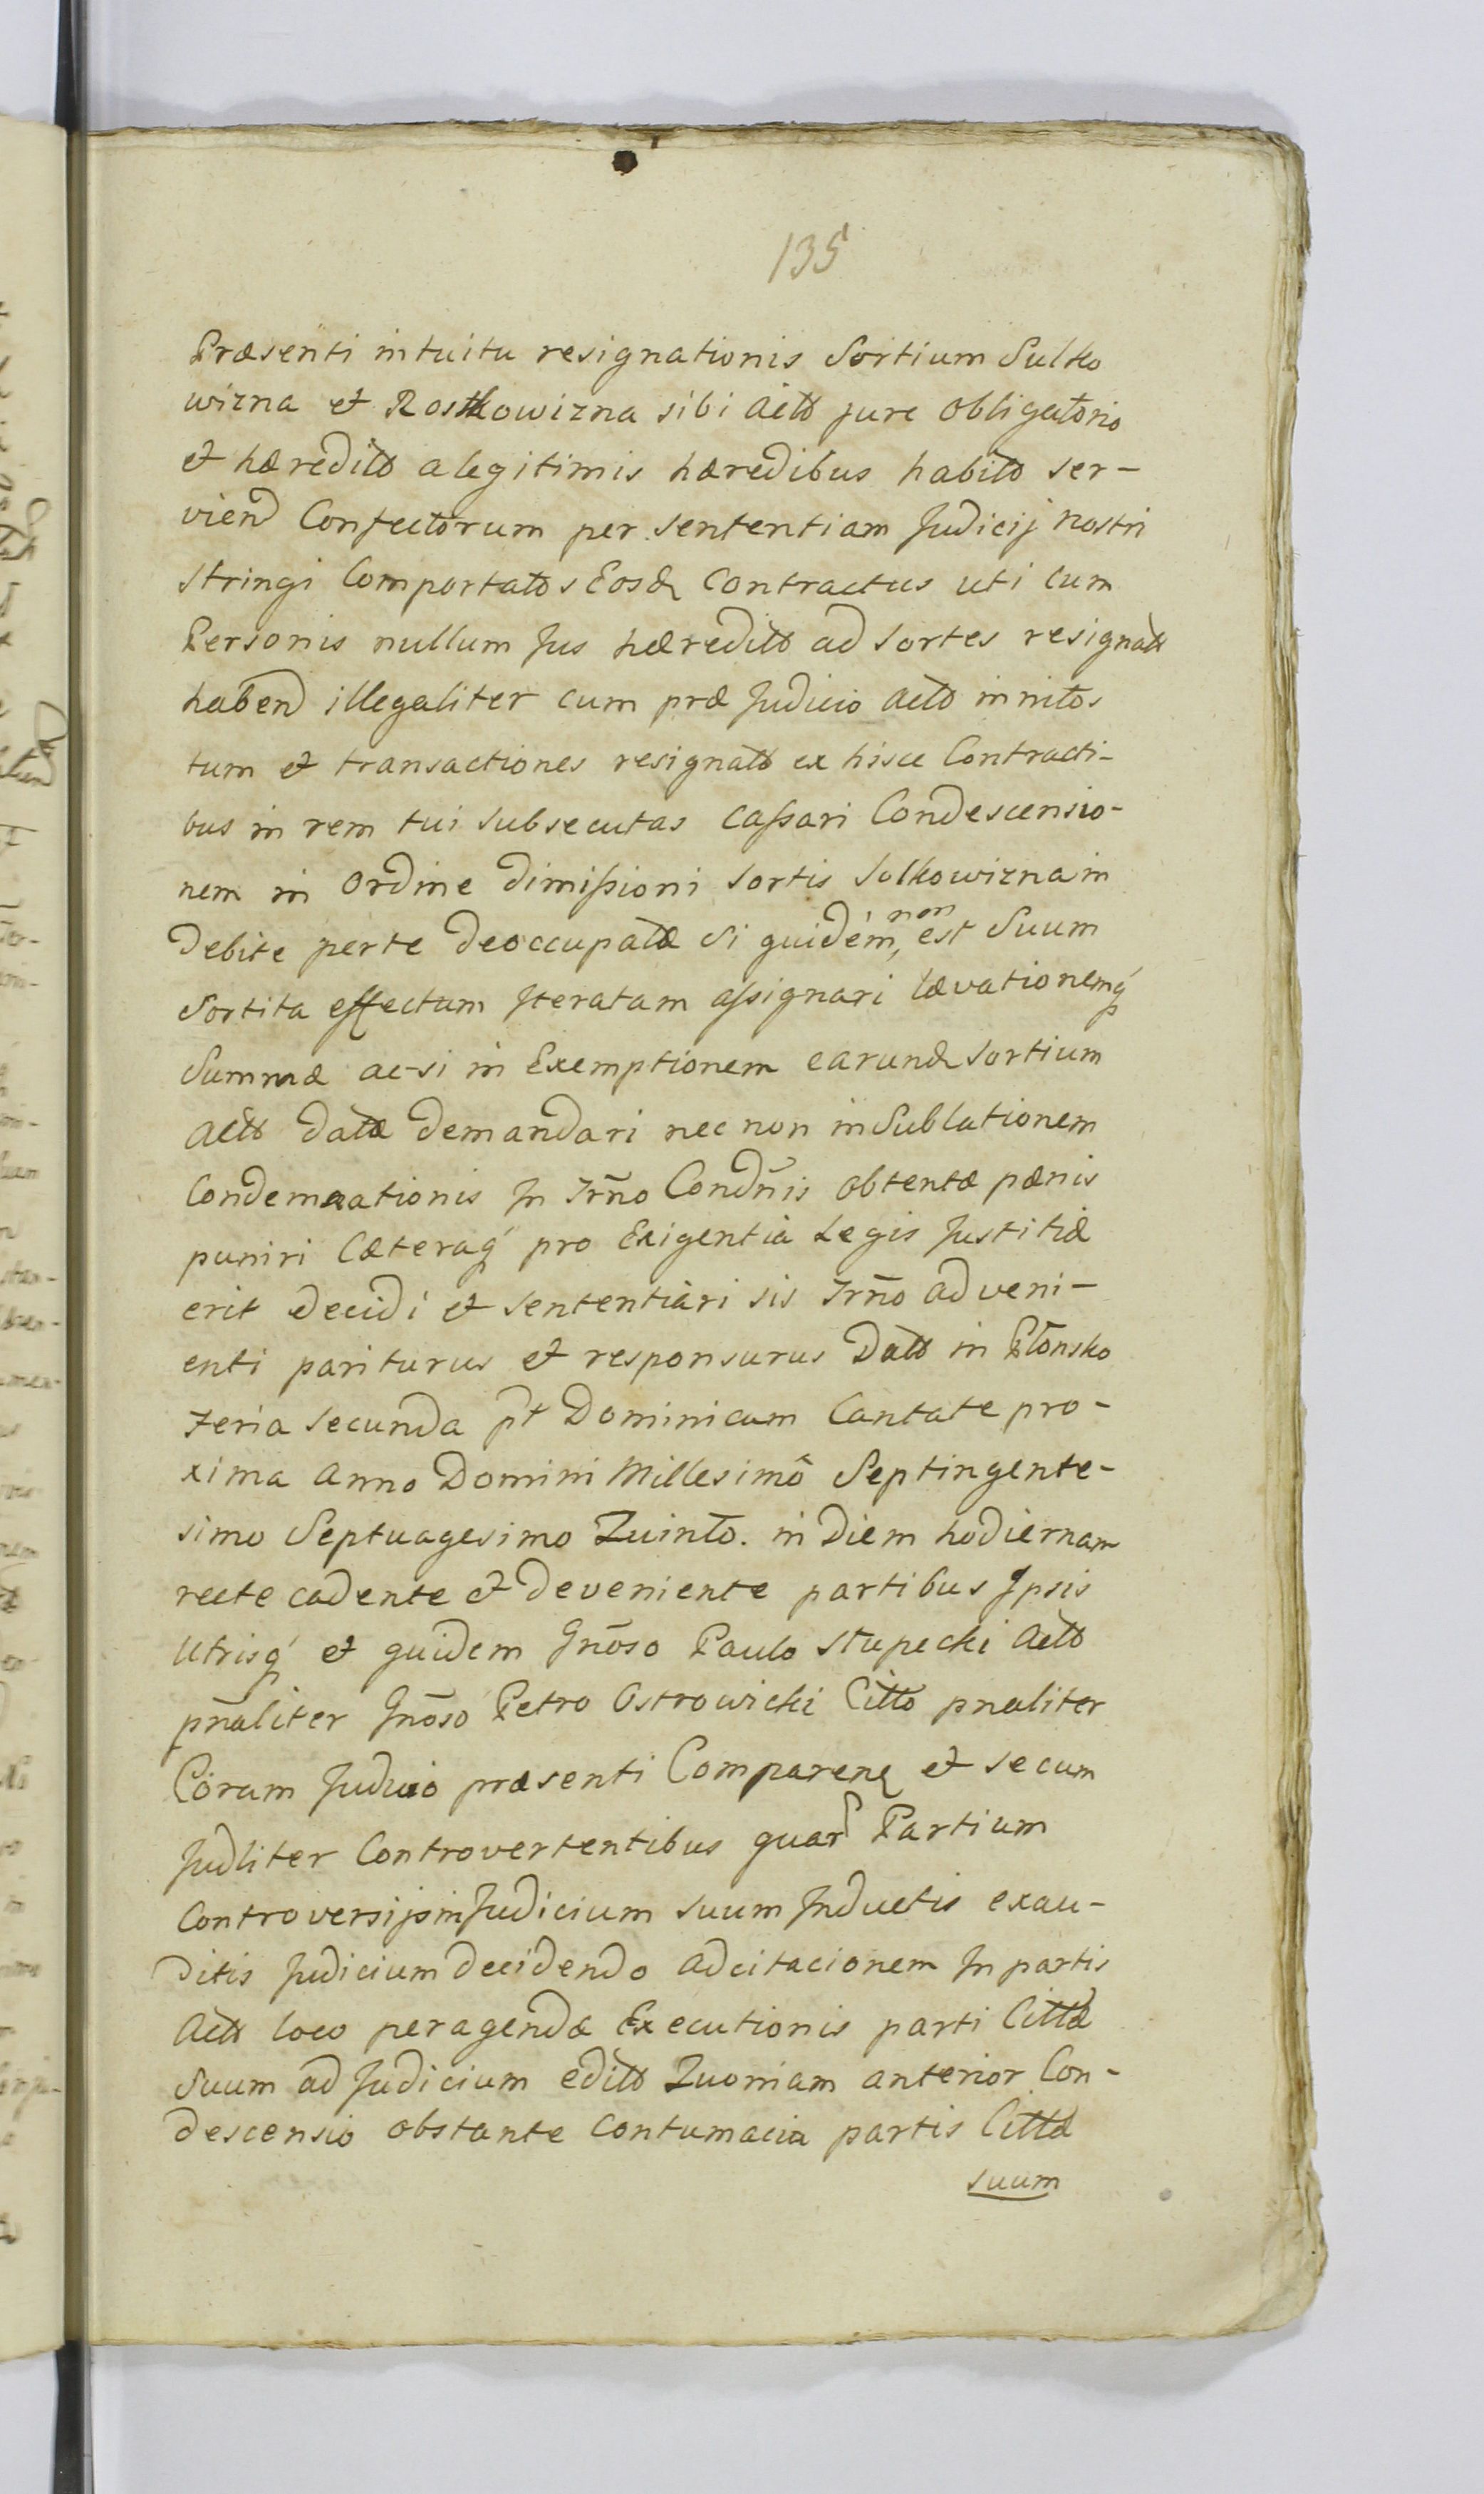 135
Præsenti intuitu resignationis Sortium Sulko
wizna et Rostkowizna sibi Actō jure Obligatorio
et hæreditō a legitimis hæredibus habitō ser-
viend Confectorum per sententiam Judicij nostri
stringi Comportatōs Eosd Contractus uti cum
Personis nullum Jus hæreditō ad Sortes resignatō
habend illegaliter cum præ Judicio Actō innitos
tum et transactiones resignatō ex hisce Contracti-
bus in rem tui subsecutas Caſsari Condescensio-
nem in Ordine dimiſsioni Sortis Sulkowizna in
debite perte deoccupatæ Si quidem, non est Suum
Sortita effectum Iteratam aſsignari lævationemq́
Summæ ac-si in Exemptionem earund Sortium
Actō datæ demandari nec non in Sublationem
Condemnationis In Trn̄o Condn̄is obtentæ pænis
puniri Cæteraq́ pro Exigentia Legis Justitiæ
erit decidi et sententiari sis Trn̄o adveni-
enti pariturus et responsurus Datō in Płońsko
Feria secunda pt Dominicam Cantate pro-
xima Anno Domini Millesimô Septingente-
simo Septuagesimo Quinto. in Diem hodiernam
recte cadente et deveniente partibus Ipsis
Utrisq́ et quidem Gn̄oso Paulo Słupecki Actō
pn̄aliter Gn̄oso Petro Ostrowicki Cittō pnaliter
Coram Judicio præsenti Comparend et secum
Judliter Controvertentibus quar Partium
Controversijs in Judicium suum Inductis exau-
ditis Judicium decidendo adcitacionem In partis
Actō loco peragendæ Executionis parti Cittæ
Suum ad Judicium editō Quoniam anterior Con-
descensio obstante Contumacia partis Cittæ
suum